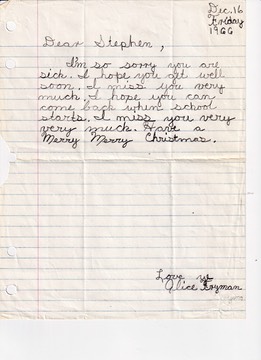 Dec. 16
Friday
1966
Dear Stephen,
I'm so sorry you are
sick. I hope you get well
soon. I miss you very
much. I hope you can
come back when school
starts. I miss you very
very much. Have a
Merry Merry Christmas.
Love
Alice